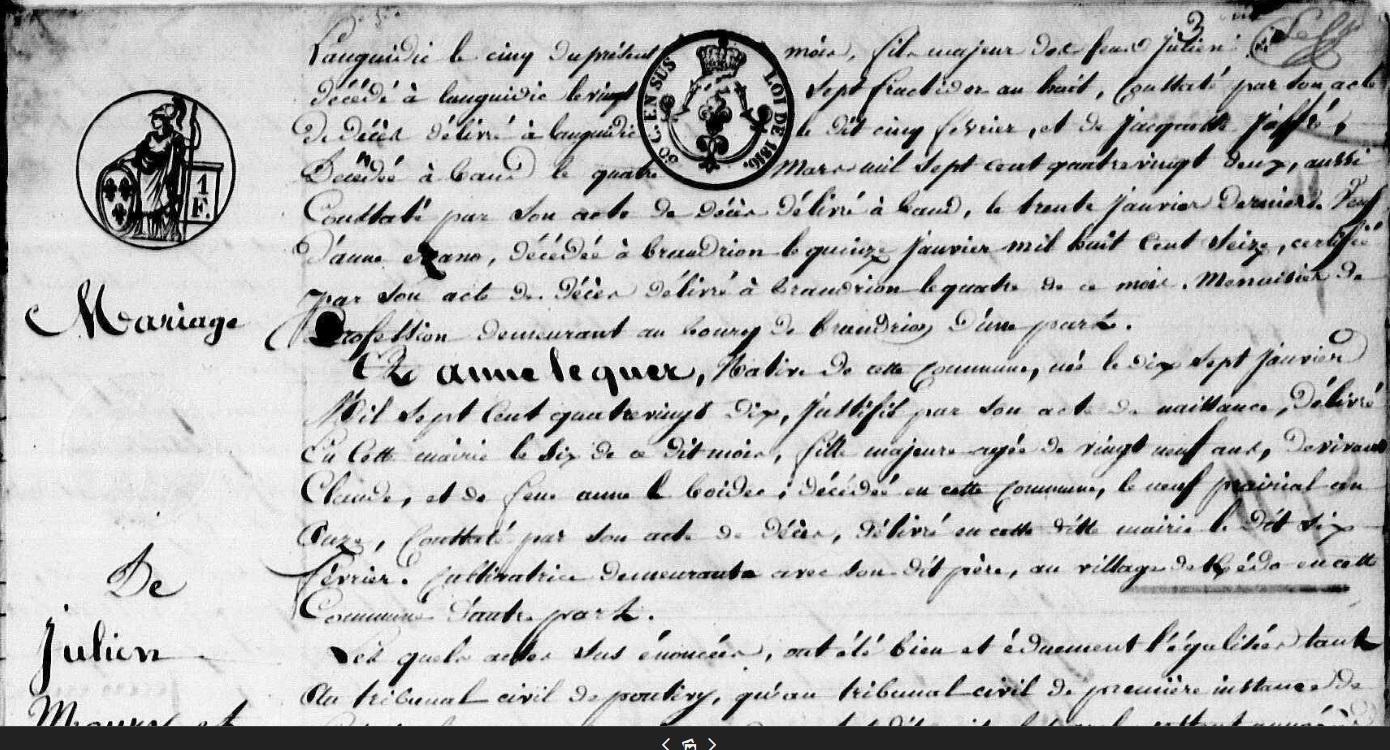 Languidic le cinq du présent mois, fils majeur des feus Julien
décédé à languidic le vingt sept fructidor an huit, Constaté par son acte
De décès délivré à languidic le dit cinq février, et de Jacquette
Décédée à baud le quatre Mars mil sept cent quatrevingt deux, aussi
Constaté par son acte de décès délivré à baud, le trente janvier dernier. Veuf
D'anne décédée à brandrion le quinze janvier mil huit cent seize, certifié
par son acte de décès délivré à brandrion le quatre de ce mois. Menuisier de
Profession demeurant au bourg de brandrion D'une part.
Et anne le quer, Native de cette Commune, née le dix sept janvier
Mil sept Cent quatrevingt dix, justifié par son acte de naissance, Délivré
En Cette mairie le six de ce dit mois, fille majeure agée de vingt neuf ans, De vivant
Claude, et de feue anne décédée en cette Commune, le neuf prairial an
Onze, Constaté par son acte de décès, délivré en cette ditte mairie le dit six
février. Cultivatrice demeurante avec son dit père, au village de en cette
Commune D'autre part.
Les quels actes sus énoncées, ont été bien et duement légalisées tant
Au tribunal civil de pontivy, qu'au tribunal civil de première instance de
3
50 C. EN SUS
LOI DE 1816.
1
F.
Mariage
De
Julien